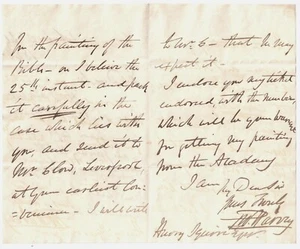 for the painting of the
Bible - on I believe the
25th instant. and pack
it carefully in the
case which lies with
you, and send it to
Mr Clow, Liverpool,
at your earliest con-
=venience - I will write
to Mr C - that he may
expect it -
I enclose you my ticket
endorsed with the number
which will be your
for getting my painting
from the Academy
I am
My Dear Sir
Yours truly
Henry